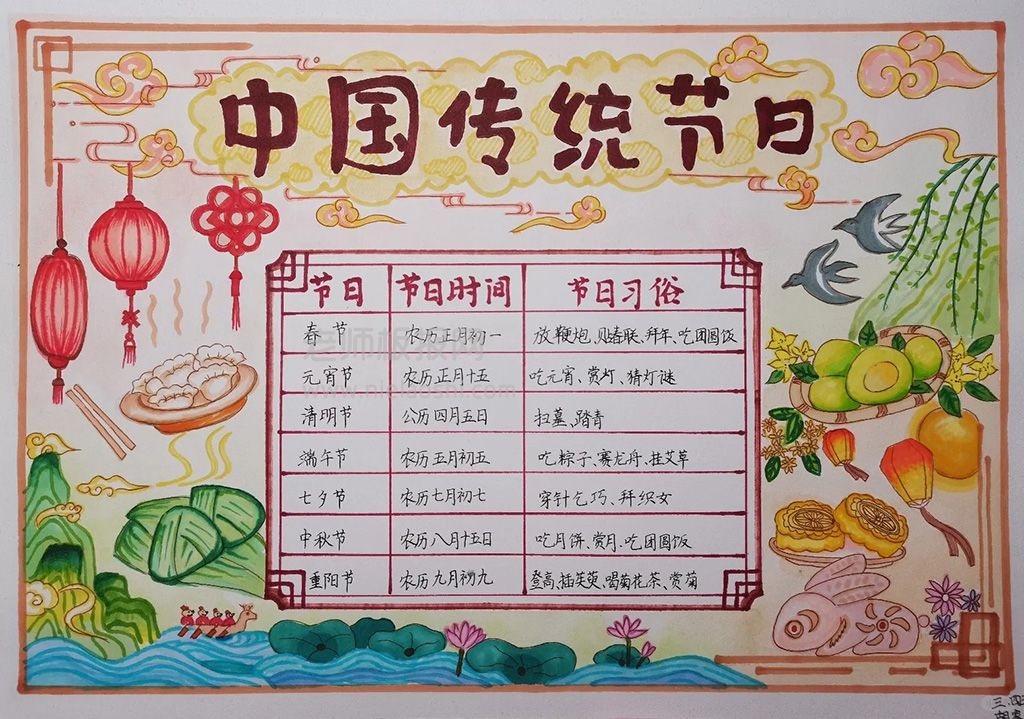 中国传统节日
节日 节日时间 节日习俗
春节 农历正月初一 放鞭炮、贴春联、拜年、吃团圆饭
元宵节 农历正月十五 吃元宵、赏灯、猜灯谜
清明节 公历四月五日 扫墓、踏青
端午节 农历五月初五 吃粽子、赛龙舟、挂艾草
七夕节 农历七月初七 穿针乞巧、拜织女
中秋节 农历八月十五日 吃月饼、赏月、吃团圆饭
重阳节 农历九月初九 登高、插茱萸、喝菊花茶、赏菊
老师板报网
三、四